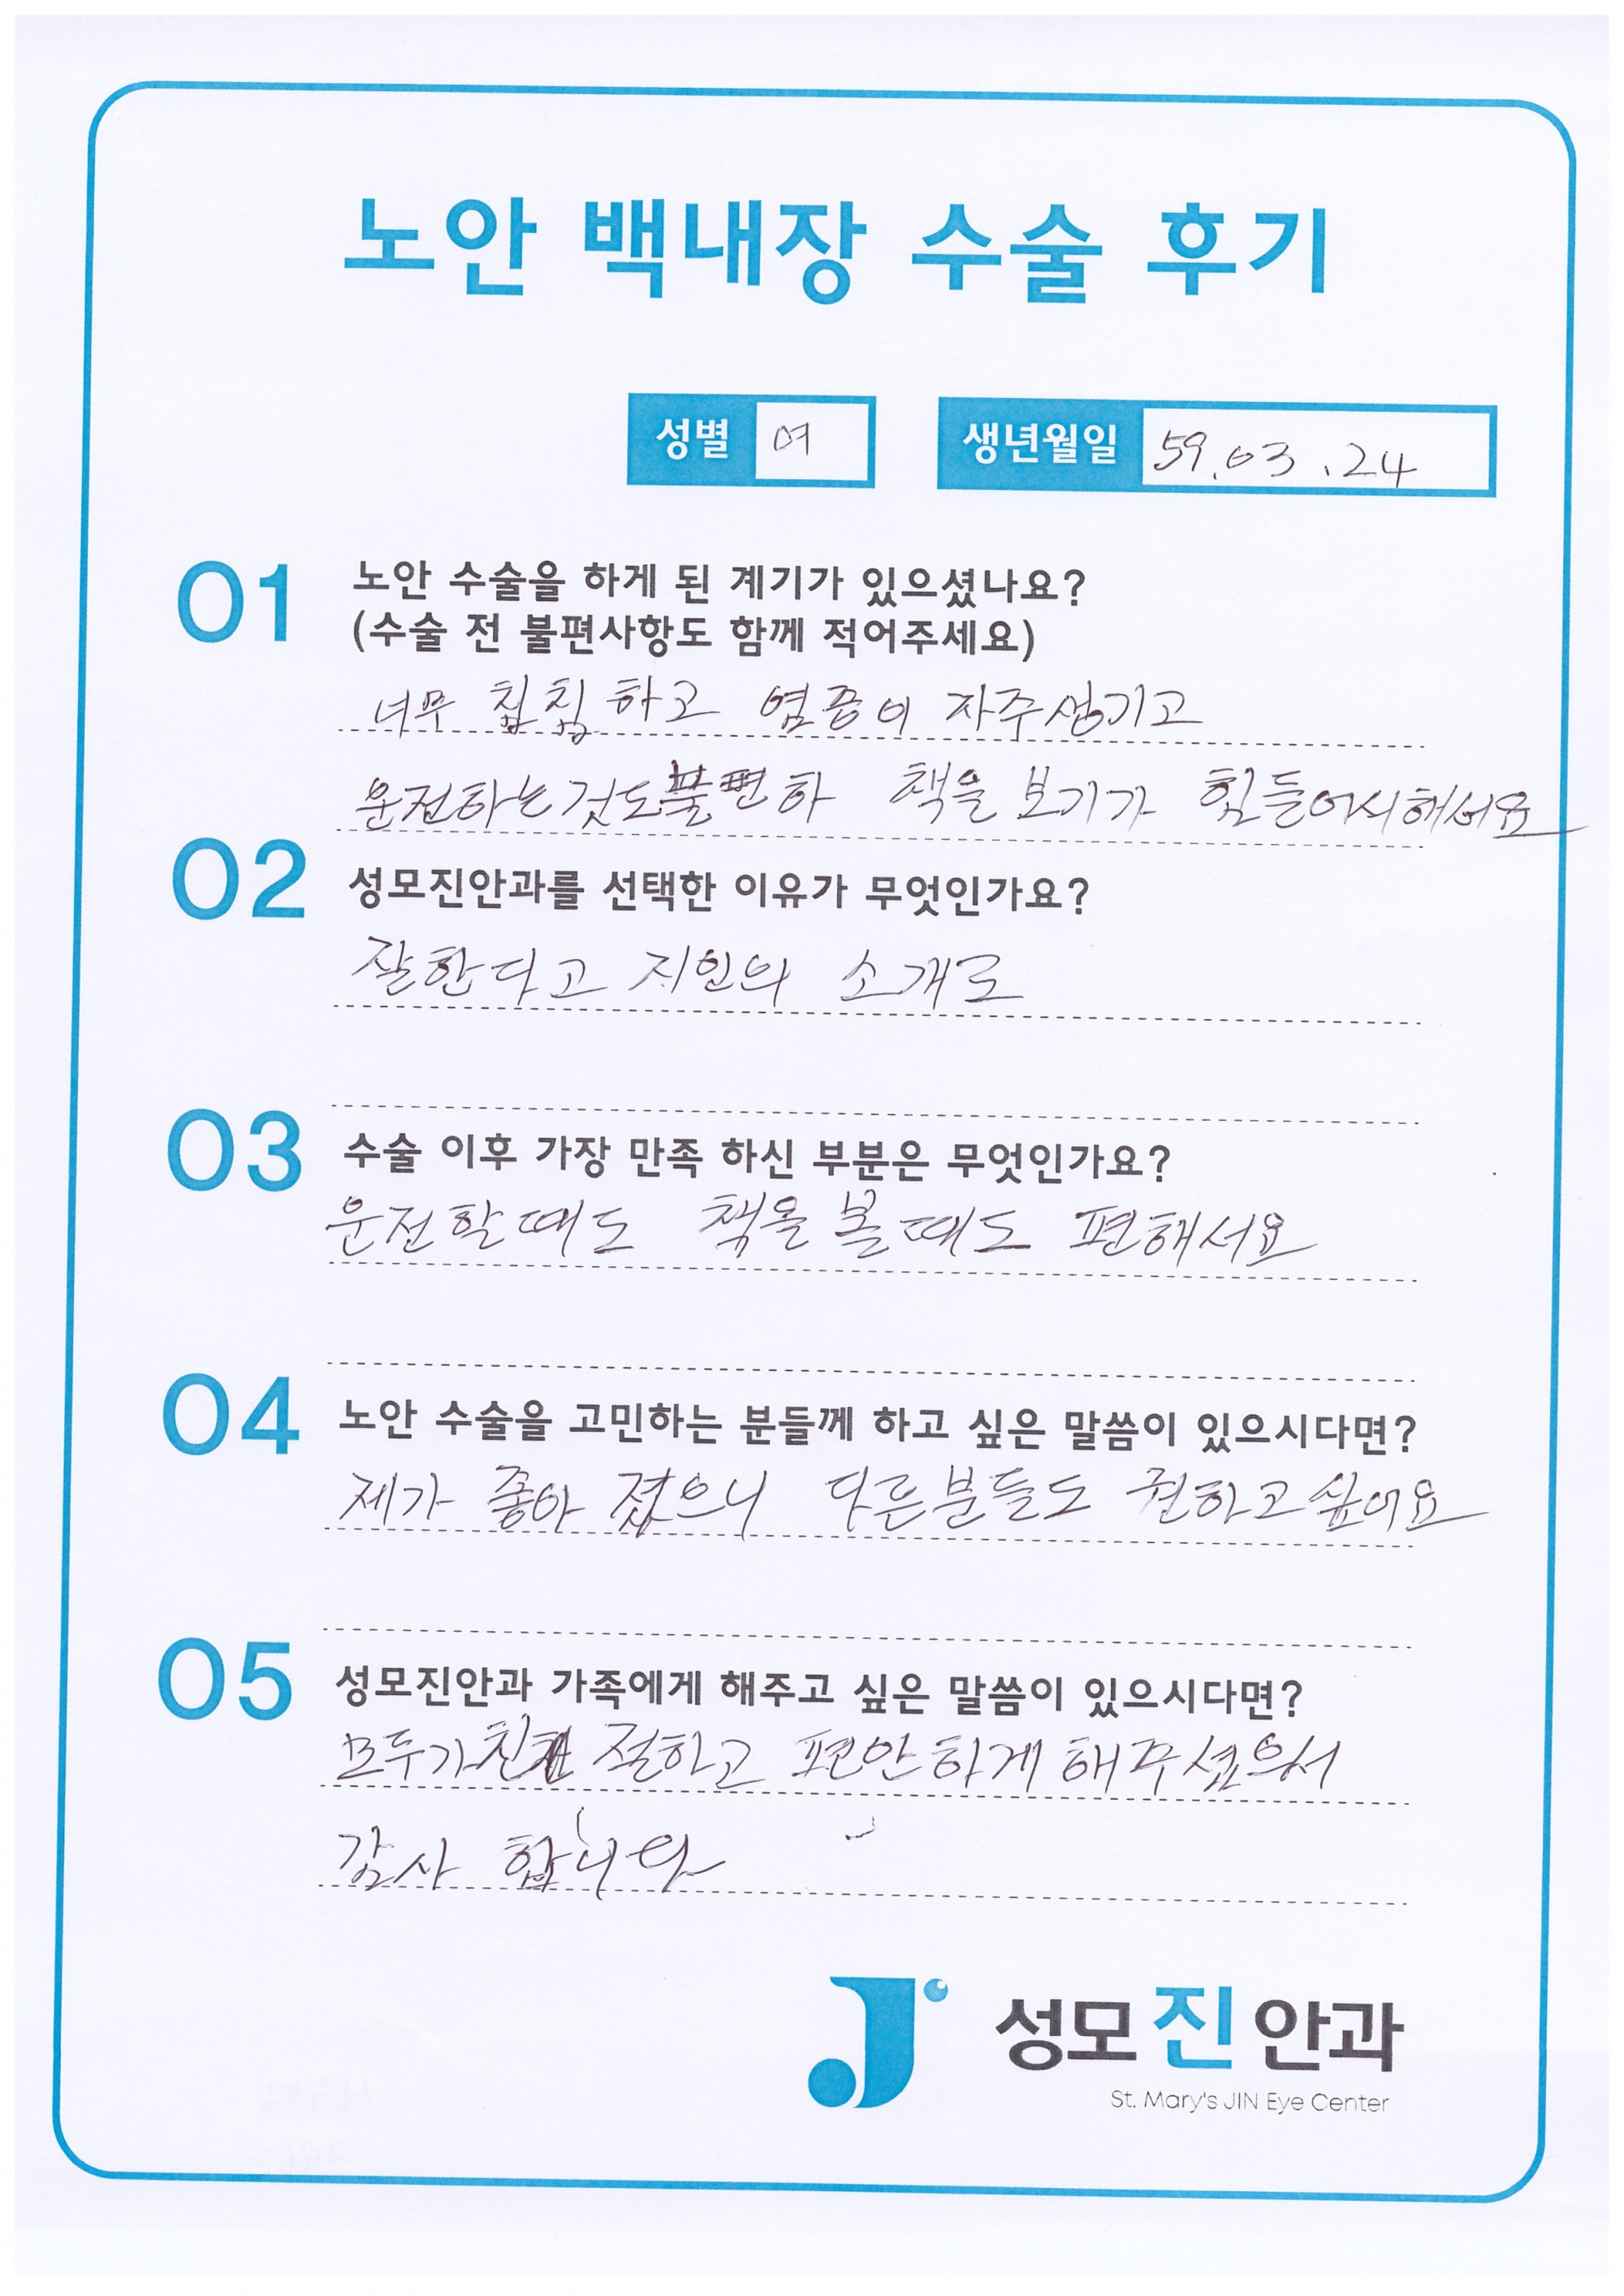 노안 백내장 수술 후기
성별 여 생년월일 59.03.24
01 노안 수술을 하게 된 계기가 있으셨나요?
(수술 전 불편사항도 함께 적어주세요)
너무 침침하고 염증이 자주생기고
운전하는것도불편하 책을 보기가 힘들어서해서요
02 성모진안과를 선택한 이유가 무엇인가요?
잘한다고 지인의 소개로
03 수술 이후 가장 만족 하신 부분은 무엇인가요?
운전할때도 책을 볼때도 편해서요
04 노안 수술을 고민하는 분들께 하고 싶은 말씀이 있으시다면?
제가 좋아 졌으니 다른분들도 권하고싶어요
05 성모진안과 가족에게 해주고 싶은 말씀이 있으시다면?
모두가친 절하고 편안하게 해주셨으서
감사 합니다
성모진안과
St. Mary's JIN Eye Center